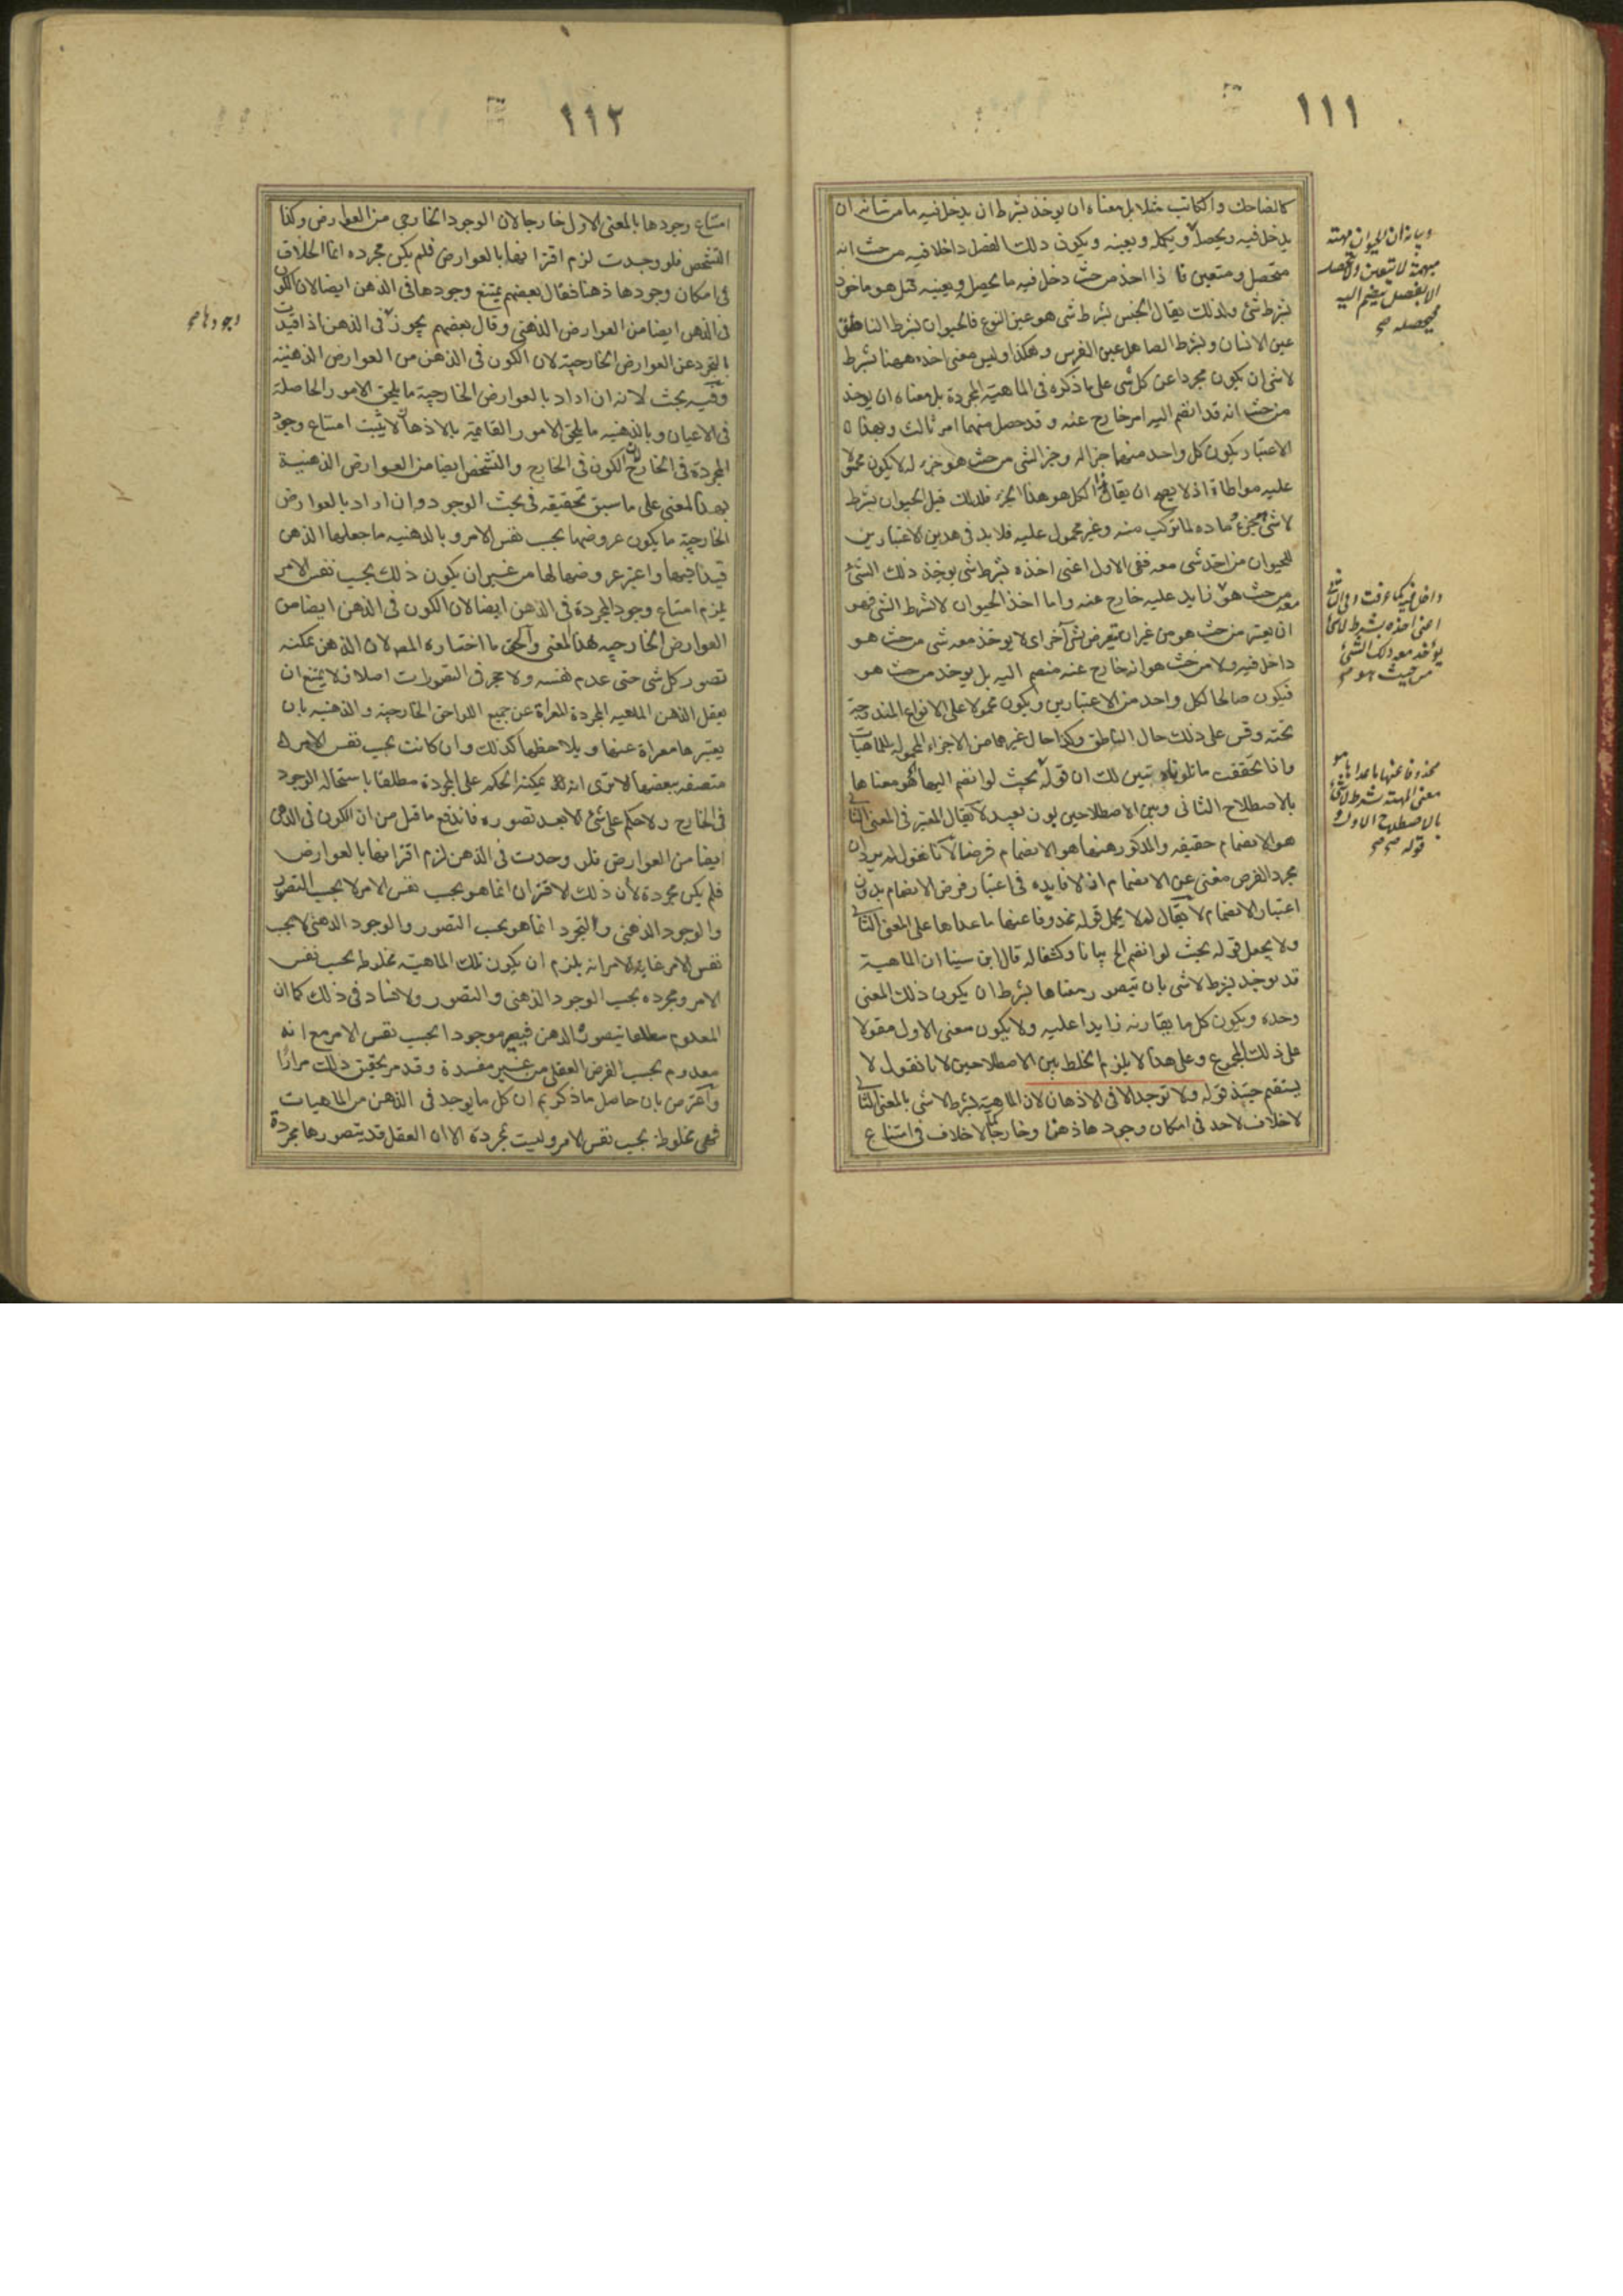 ١١١
كالضاحك والكاتب مثلا بل معناه ان يوخذ بشرط ان يدخل فيه ما من شانه ان
يدخل فيه ويحصله ويكمله ويعينه ويكون ذلك الفصل داخلا فيه من حيث انه
متحصل ومتعين فاذا اخذ من حيث دخل فيه ما يحصله ويعينه قيل هو ماخوذ
بشرط شئ ولذلك يقال الجنس بشرط شئ هو عين النوع فالحيوان بشرط الناطق
عين الانسان وبشرط الصاهل عين الفرس وهكذا وليس معنى اخذه ههنا بشرط
لا شئ ان يكون مجردا عن كل شئ على ما ذكره في الماهية المجردة بل معناه ان يوخذ
من حيث انه قد انضم اليه امر خارج عنه وقد حصل منهما امر ثالث وبهذا
الاعتبار يكون كل واحد منهما جزأ له وجزء الشئ من حيث هو جزء له لا يكون محمولا
عليه مواطاة اذ لا يصح ان يقال هذا الكل هو هذا الجزء فلذلك قيل الحيوان بشرط
لا شئ جزء ومادة لما تركب منه وغير محمول عليه فلا بد في هذين الاعتبارين
للحيوان من اخذ شئ معه ففي الاول اعنى اخذه بشرط شئ يوخذ ذلك الشئ
معه من حيث هو زايد عليه خارج عنه واما اخذ الحيوان لا بشرط الشئ فهو
ان يعتبر من حيث هو من غير ان يتعرض لشئ آخر اى لا يوخذ معه شئ من حيث هو
داخل فيه ولا من حيث هو انه خارج عنه منضم اليه بل يوخذ من حيث هو
فيكون صالحا لكل واحد من الاعتبارين ويكون محمولا على الانواع المندرجة
تحته وقس على ذلك حال الناطق وكذا حال غيرها من الاجزاء المحمولة للماهيات
واذا تحققت ما تلوناه تبين لك ان قوله بحيث لو انضم اليها هو معناها
بالاصطلاح الثانى وبين الاصطلاحين بون بعيد لا يقال المعتبر في المعنى الثانى
هو الانضمام حقيقة والمذكور ههنا هو الانضمام فرضا لانا نقول لم يرد ان
مجرد الفرض مغنى عن الانضمام اذ لا فايدة في اعتبار فرض الانضمام بدون
اعتبار الانضمام لا يقال لم لا يحمل قوله محذوفا عنها ما عداها على المعنى الثانى
ولا يجعل قوله بحيث لو انضم الخ بيانا وكشفا له قال ابن سينا ان الماهية
قد يوخذ بشرط لا شئ بان يتصور معناها بشرط ان يكون ذلك المعنى
وحده ويكون كل ما يقارنه زايدا عليه ولا يكون معنى الاول مقولا
على ذلك المجموع وعلى هذا لا يلزم الخلط بين الاصطلاحين لانا نقول لا
يستقيم حينئذ قوله ولا توجد الا في الاذهان لان الماهية بشرط لا شئ بالمعنى الثانى
لا خلاف لاحد في امكان وجودها ذهنا وخارجا لا خلاف في امتناع
وبيانه ان الحيوان مهية
مبهمة لا يتعين ولا يتحصل
الا بفصل ينضم اليه
فيحصله صح
داخل فيه كما عرفت وفي الثانى
اعنى اخذه بشرط لا شئ
يؤخذ معه ذلك الشئ
من حيث هو صح
محذوفا عنها ما عداها هو
معنى المهية بشرط لا شئ
بالاصطلاح الاول و
قوله صح
١١٢
امتناع وجودها بالمعنى الاول خارجا لان الوجود الخارجي من العوارض وكذا
التشخص فلو وجدت لزم اقترانها بالعوارض فلم يكن مجرده انما الخلاف
في امكان وجودها ذهنا فقال بعضهم يمتنع وجودها في الذهن ايضا لان الكون
في الذهن ايضا من العوارض الذهنى وقال بعضهم يجوز في الذهن اذا قيدت
بالتجرد عن العوارض الخارجية لان الكون في الذهن من العوارض الذهنية
وفيه بحث لانه ان اراد بالعوارض الخارجية ما يلحق الامور الحاصلة
في الاعيان وبالذهنيه ما يلحق الامور القايمة بالاذهان لا يثبت امتناع وجود
المجردة في الخارج لان الكون في الخارج والتشخص ايضا من العوارض الذهنية
بهذا المعنى على ما سبق تحقيقه في بحث الوجود وان اراد بالعوارض
الخارجية ما يكون عروضها بحسب نفس الامر وبالذهنيه ما جعلها الذهن
قيدا فيها واعتبر عروضها لها من غير ان يكون ذلك بحسب نفس الامر
يلزم امتناع وجود المجردة في الذهن ايضا لان الكون في الذهن ايضا من
العوارض الخارجيه بهذا المعنى والحق ما اختاره المصـ لان الذهن يمكنه
تصور كل شئ حتى عدم نفسه ولا حجر في التصورات اصلا فلا يمتنع ان
يعقل الذهن الماهيه المجردة المعراة عن جميع اللواحق الخارجية والذهنيه بان
يعتبرها معراة عنها ويلاحظها كذلك وان كانت بحسب نفس الامر
متصفه ببعضها الا ترى انه يمكنه الحكم على المجردة مطلقا باستحالة الوجود
في الخارج ولا حكم على شئ الا بعد تصوره فاندفع ما قيل من ان الكون في الذهن
ايضا من العوارض فلو وجدت في الذهن لزم اقترانها بالعوارض
فلم يكن مجردة لأن ذلك الاقتران انما هو بحسب نفس الامر لا بحسب التصور
والوجود الذهنى والتجرد انما هو بحسب التصور والوجود الذهنى لا بحسب
نفس الامر غاية الامر انه يلزم ان يكون تلك الماهية مخلوطة بحسب نفس
الامر ومجرده بحسب الوجود الذهنى والتصور ولا فساد في ذلك كما ان
المعدوم مطلقا يتصوره الذهن فيصير موجودا بحسب نفس الامر مع انه
معدوم بحسب الفرض العقلى من غير مفسدة وقد مر تحقيق ذلك مرارا
واعترض بان حاصل ما ذكرتم ان كل ما يوجد في الذهن من الماهيات
فهى مخلوطة بحسب نفس الامر وليست مجردة الا ان العقل قد يتصورها مجردة
وجودها صح